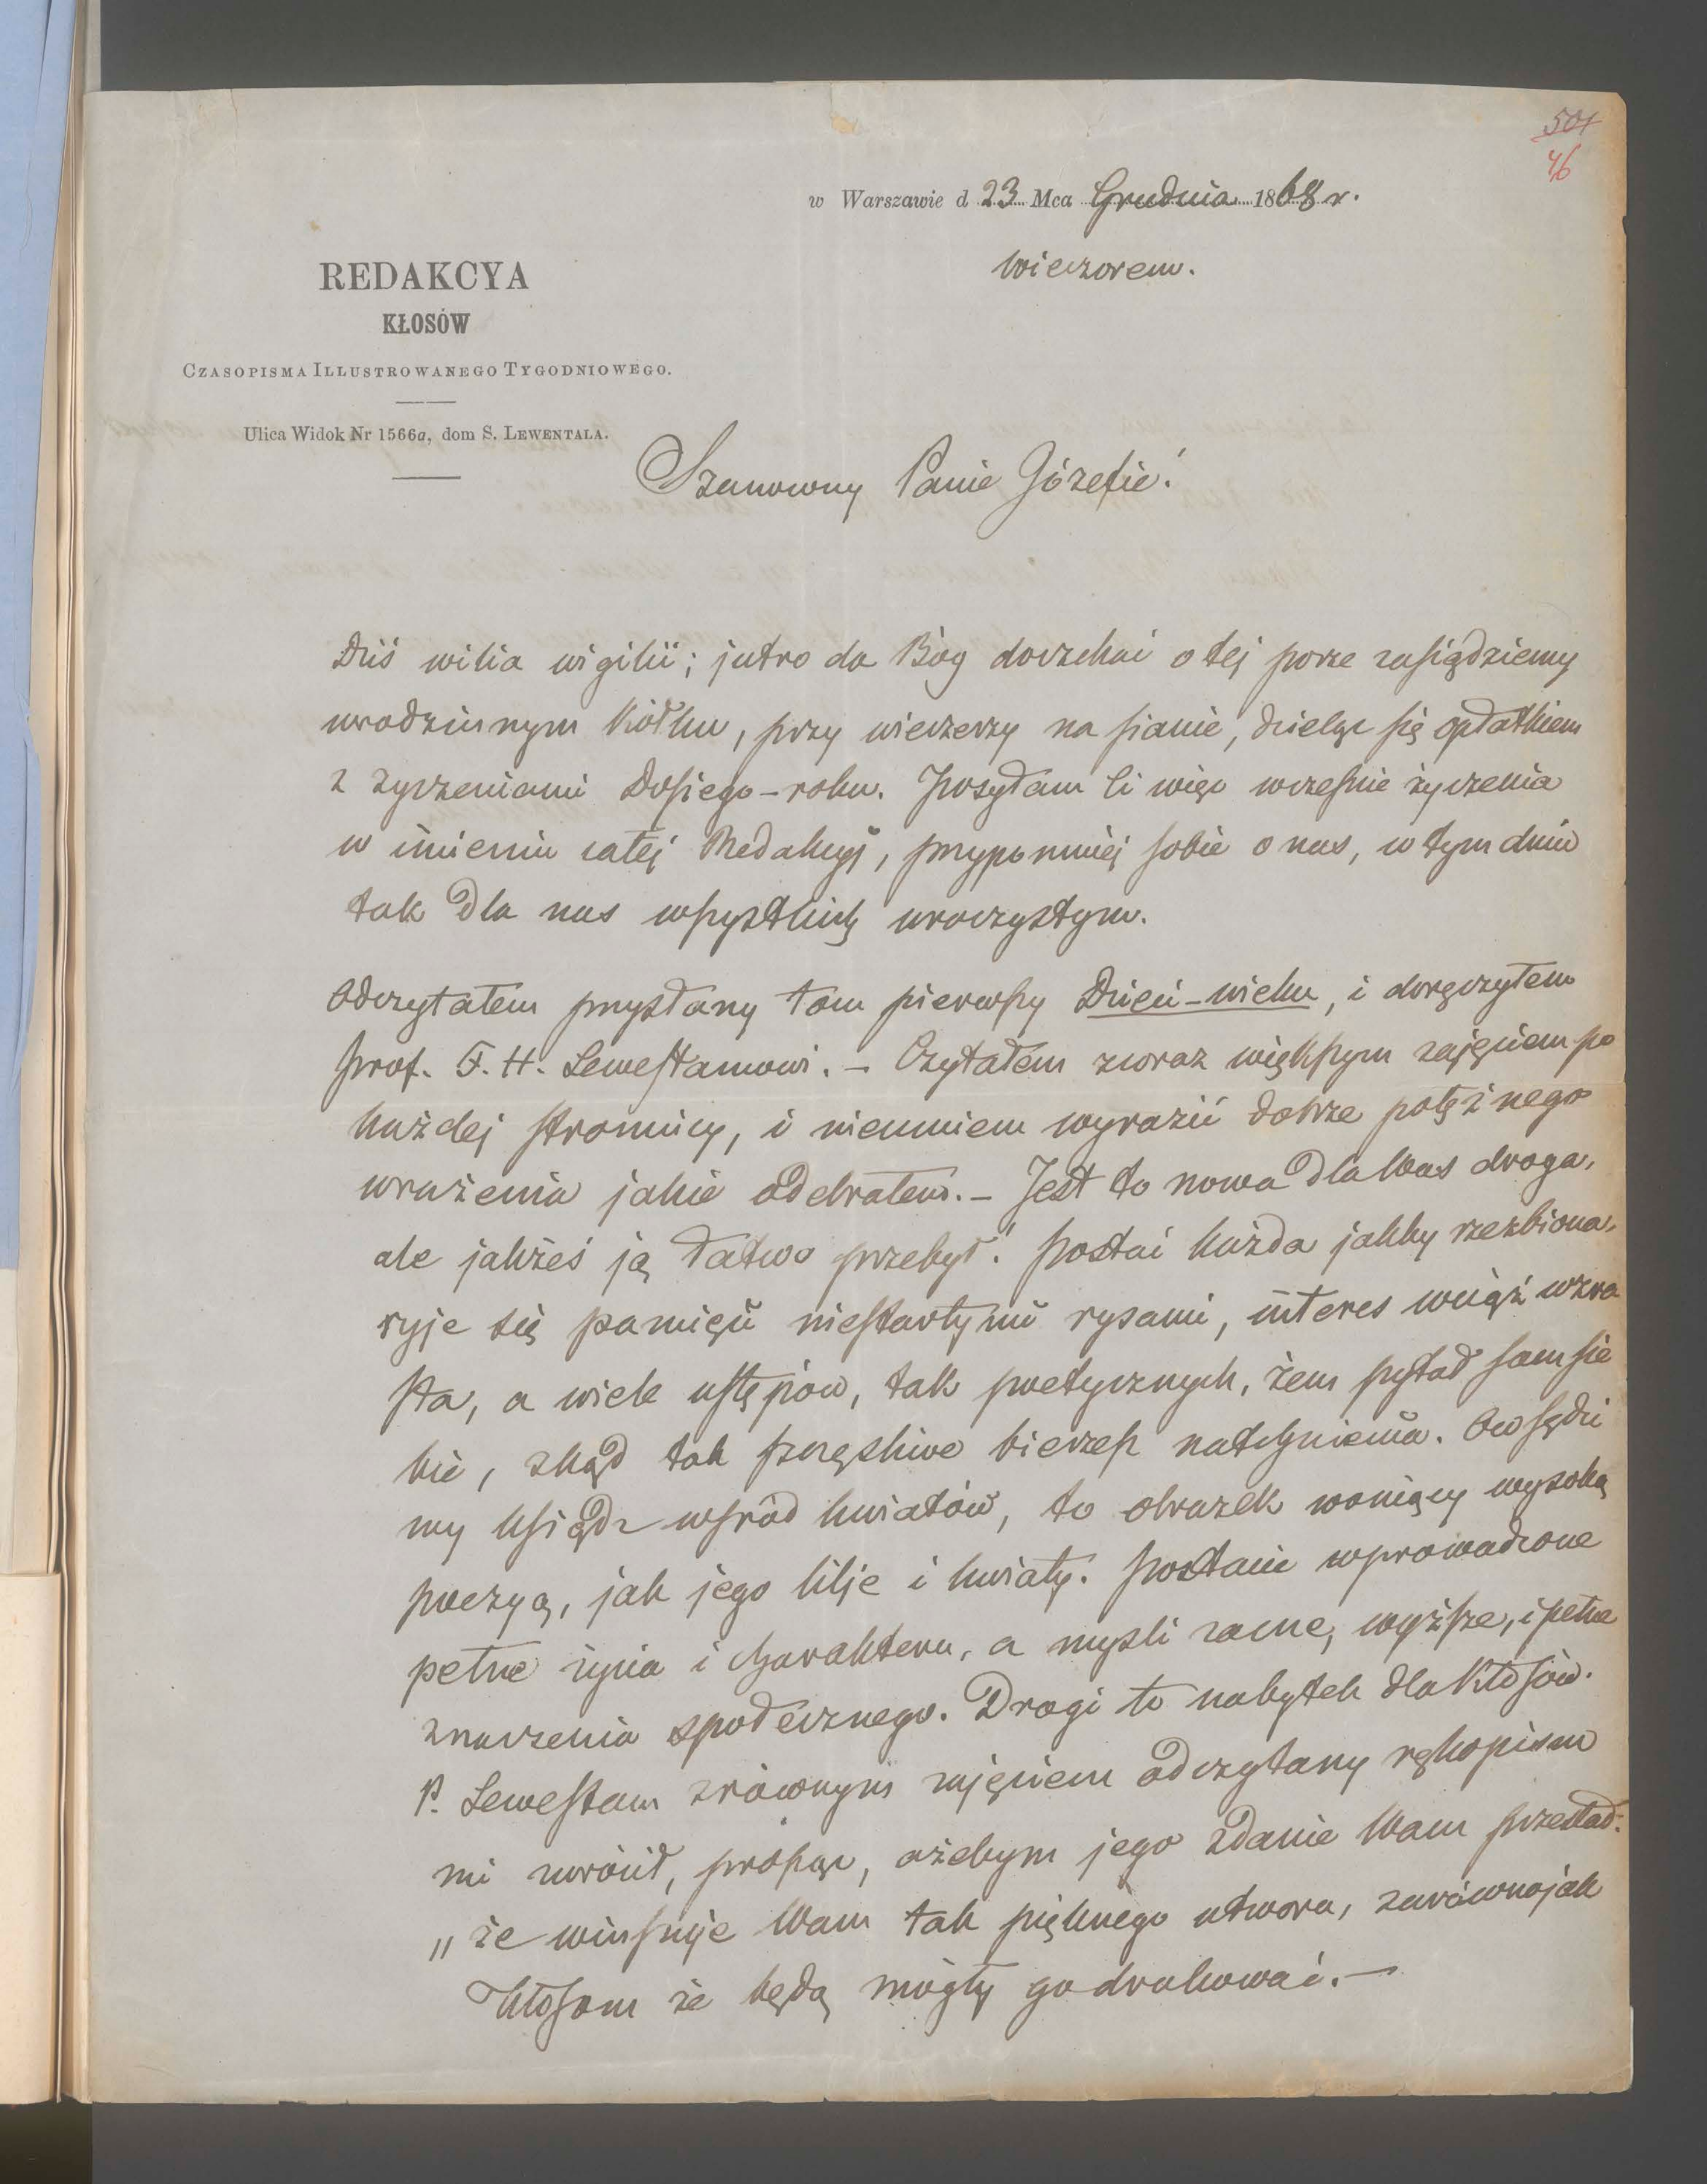 501
46
w Warszawie d 23 Mca Grudnia 1868 r.
wieczorem.
REDAKCYA
KŁOSÓW
CZASOPISMA ILLUSTROWANEGO TYGODNIOWEGO.
Ulica Widok Nr 1566a, dom S. LEWENTALA.
Szanowny Panie Józefie!
Dziś wilia wigilii; jutro da Bóg doczekać o tej porze zasiędziemy
w rodzinnym kółku, przy wieczerzy na sianie, dzieląc się opłatkiem
z życzeniami Dosiego-roku. Posyłam Ci więc wcześnie życzenia
w imieniu całej Redakcyi, przypomniej sobie o nas, w tym dniu
tak dla nas wszystkich uroczystym.
Odczytałem przysłany tom pierwszy Dzieci-wieku, i doręczyłem
prof. F. H. Lewestamowi. – Czytałem z coraz większym zajęciem po
każdej stronnicy, i nieumiem wyrazić dobrze potężnego
wrażenia jakie odebrałem. – Jest to nowa dla Was droga,
ale jakżeś ją łatwo przebył! Postać każda jakby rzeźbiona,
ryje się pamięci niestartymi rysami, interes wciąż wzra
sta, a wiele ustępów, tak poetycznych, żem pytał sam sie
bie, zkąd tak szczęśliwe bierzesz natchnienia. Ow sędzi
my ksiądz wśród kwiatów, to obrazek woniący wysoką
poezyą, jak jego lilje i kwiaty. Postacie wprowadzone
pełne życia i charakteru, a myśli zacne, wyższe, i pełne
znaczenia społecznego. Drogi to nabytek dla Kłosów.
P. Lewestam z równym zajęciem odczytany rękopism
mi zwrócił, prosząc, ażebym jego zdanie Wam przesłał:
„że winszuje Wam tak pięknego utworu, zarówno jak
Kłosom że będą mogły go drukować. –